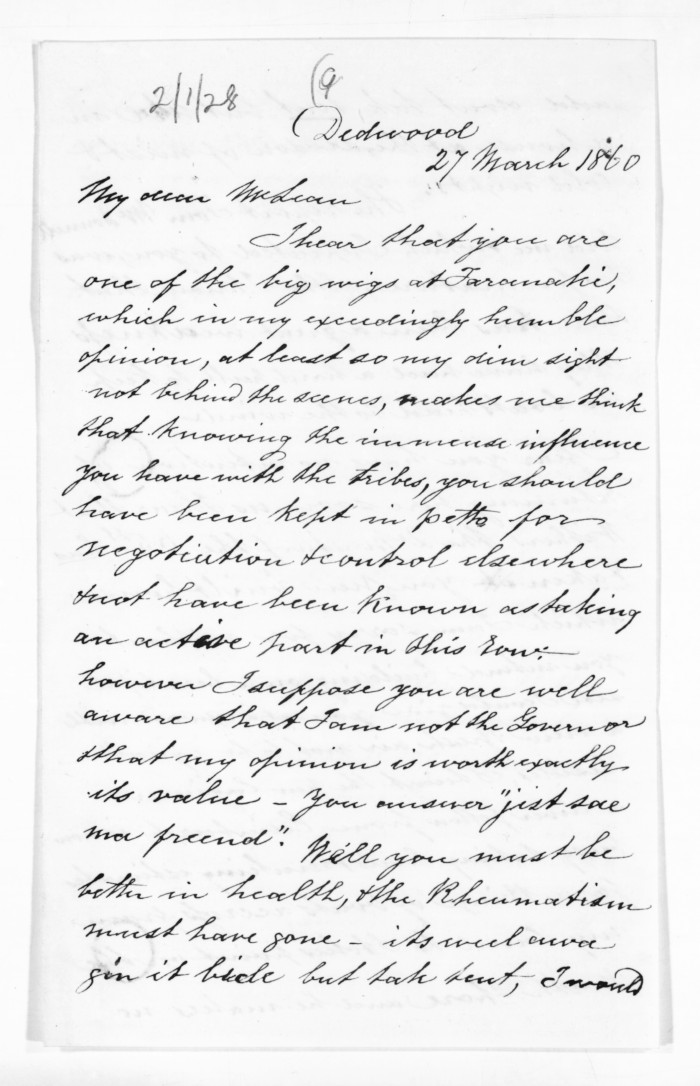 2/1/28
(9
Dedwood
27 March 1860
My dear McLean
I hear that you are
one of the big wigs at Taranaki,
which in my exceedingly humble
opinion, at least so my dim sight
not behind the scenes, makes me think
that knowing the immense influence
you have with the tribes, you should
have been kept in petto for
negotiation & control elsewhere
& not have been known as taking
an active part in this row:
however I suppose you are well
aware that I am not the Governor
& that my opinion is worth exactly
its value – You answer "jist sae
ma freend".
Well you must be
better in health, & the Rheumatism
must have gone – its weel awa
gin it bide but tak tent, I would